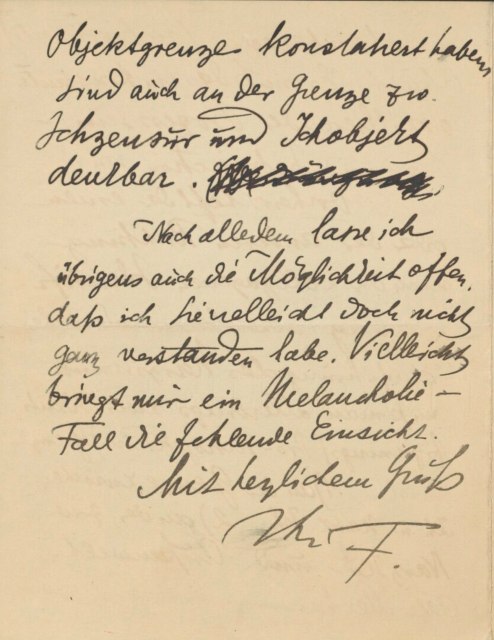 Objektgrenze konstatiert haben,
sind auch an der Grenze zw.
Ichzensur und Ichobjekt
denkbar.
Nach alledem lasse ich
übrigens auch die Möglichkeit offen,
daß ich Sie vielleicht doch nicht
ganz verstanden habe. Vielleicht
bringt mir ein Melancholie-
Fall die fehlende Einsicht.
Mit herzlichem Gruß
Ihr F.